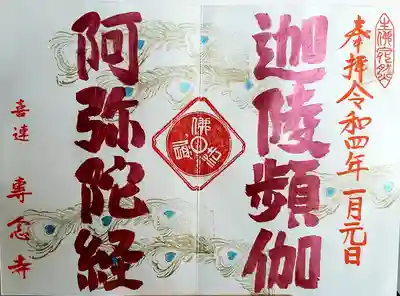 奉拝令和四年一月元日
迦陵頻伽
阿弥陀経
喜連 専念寺